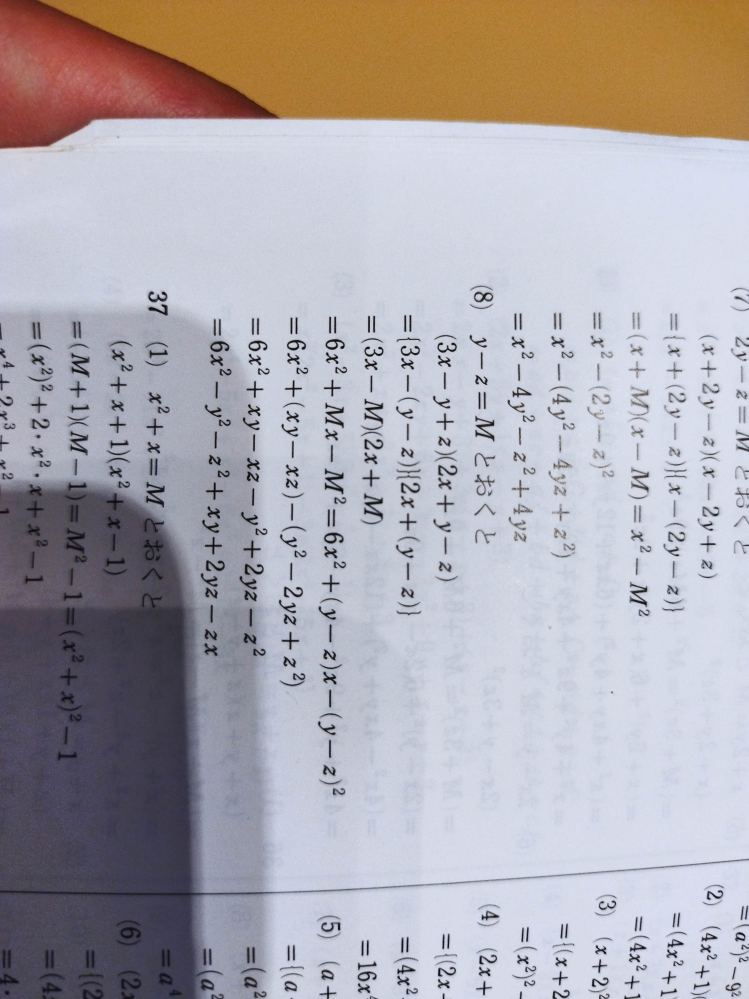 (7) 2y－z＝M とおくと
(x＋2y－z)(x－2y＋z)
＝{x＋(2y－z)}{x－(2y－z)}
＝(x＋M)(x－M)＝x²－M²
＝x²－(2y－z)²
＝x²－(4y²－4yz＋z²)
＝x²－4y²－z²＋4yz
(8) y－z＝M とおくと
(3x－y＋z)(2x＋y－z)
＝{3x－(y－z)}{2x＋(y－z)}
＝(3x－M)(2x＋M)
＝6x²＋Mx－M²＝6x²＋(y－z)x－(y－z)²
＝6x²＋(xy－xz)－(y²－2yz＋z²)
＝6x²＋xy－xz－y²＋2yz－z²
＝6x²－y²－z²＋xy＋2yz－zx
37 (1) x²＋x＝M とおくと
(x²＋x＋1)(x²＋x－1)
＝(M＋1)(M－1)＝M²－1＝(x²＋x)²－1
＝(x²)²＋2・x²・x＋x²－1
＝x⁴＋2x³＋x²－1
＝(a²)²－9²
(2) (4x²＋1)
＝(4x²＋1)
＝(4x²＋1
(3) (x＋2)²
＝{(x＋2
＝(x²)²－
(4) (2x＋
＝{(2x－
＝(4x²
＝16x⁴
(5) (a＋
＝{(a
＝(a²
＝(a²
＝a⁴
(6) (2x
＝{(2
＝(4
＝4・